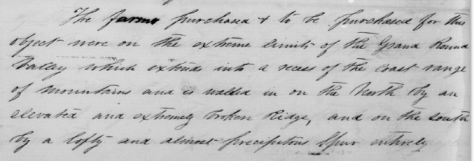 The farms purchased & to be purchased for this
object were on the extreme limits of the Grand Round
Valley which extend into a recess of the Coast range
of mountains and is walled in on the North by an
elevated and extremely broken Ridge, and on the south
by a lofty and almost precipitous Spur entirely